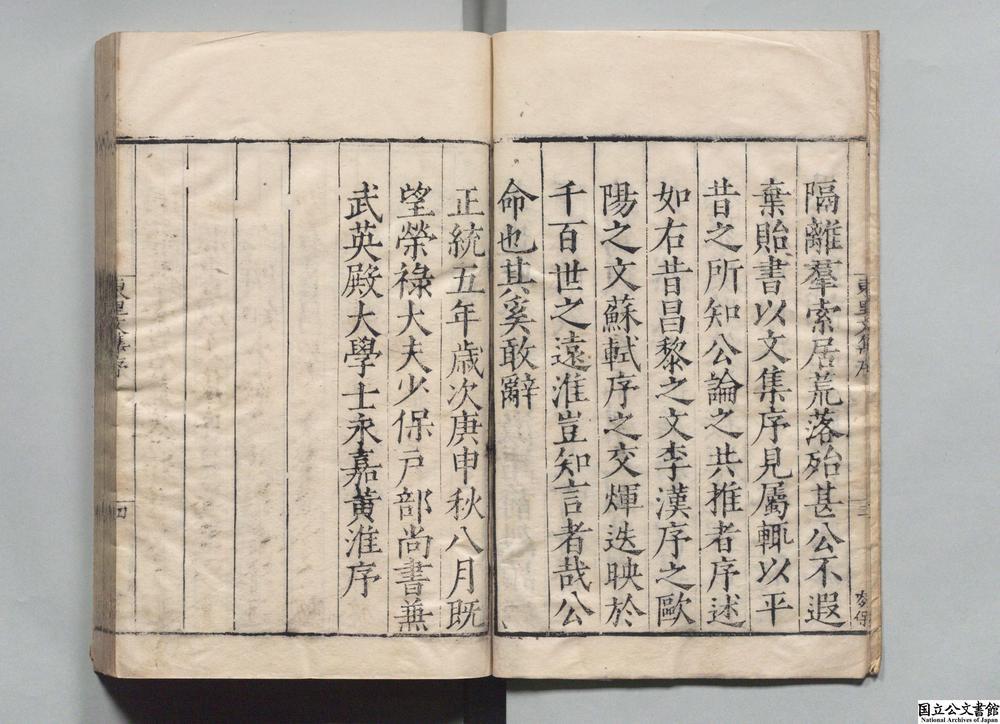 隔離羣索居荒落殆甚公不遐
棄貽書以文集序見屬輙以平
昔之所知公論之共推者序述
如右昔昌黎之文李漢序之歐
陽之文蘇軾序之交煇迭映於
千百世之遠淮豈知言者哉公
命也其奚敢辭
正統五年歲次庚申秋八月既
望榮祿大夫少保戶部尚書兼
武英殿大學士永嘉黃淮序
東里文集序
四
国立公文書館
National Archives of Japan